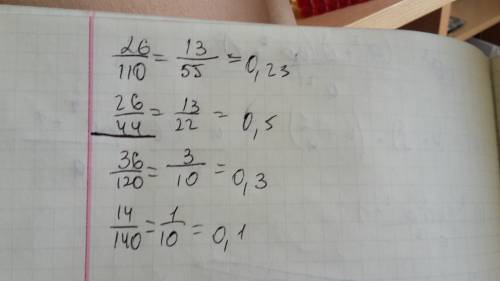 26/110 = 13/55 = 0,23
26/44 = 13/22 = 0,5
36/120 = 3/10 = 0,3
14/140 = 1/10 = 0,1